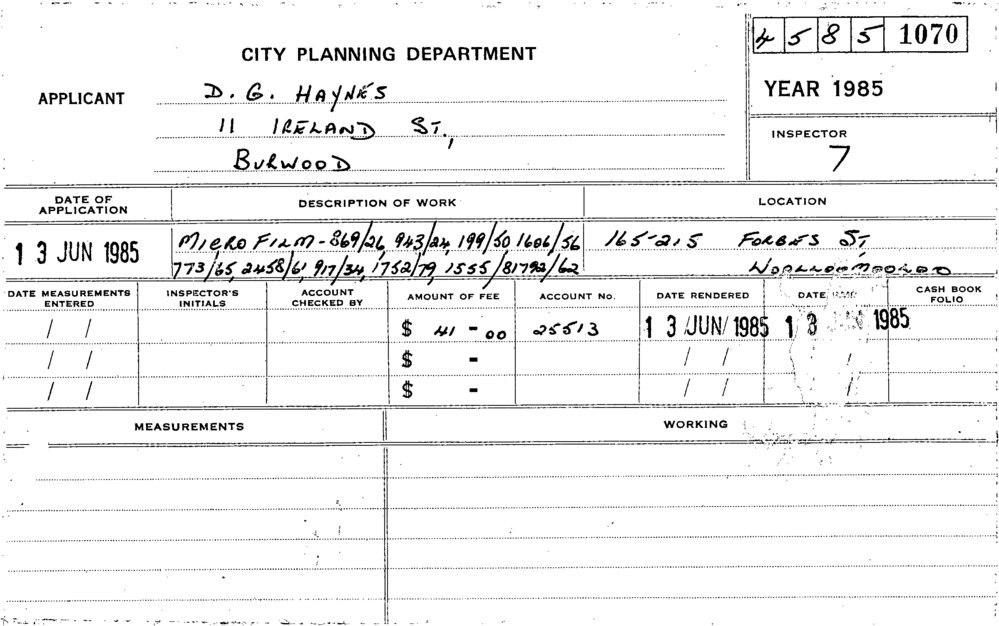 4 5 8 5 1070
CITY PLANNING DEPARTMENT
YEAR 1985
APPLICANT D. G. HAYNES
11 IRELAND ST.,
BURWOOD
INSPECTOR
7
DATE OF APPLICATION DESCRIPTION OF WORK LOCATION
13 JUN 1985 MICRO FILM - 869/26, 943/24, 199/50 1606/56 165-215 FORBES ST,
773/65, 2458/61 917/34, 1752/79, 1555/81 792/62 WOOLLOOMOOLOO
DATE MEASUREMENTS ENTERED INSPECTOR'S INITIALS ACCOUNT CHECKED BY AMOUNT OF FEE ACCOUNT No. DATE RENDERED DATE CASH BOOK FOLIO
/ / $ 41 - 00 25513 13 JUN 1985 13 1985
/ / $ - / / /
/ / $ - / / /
MEASUREMENTS WORKING